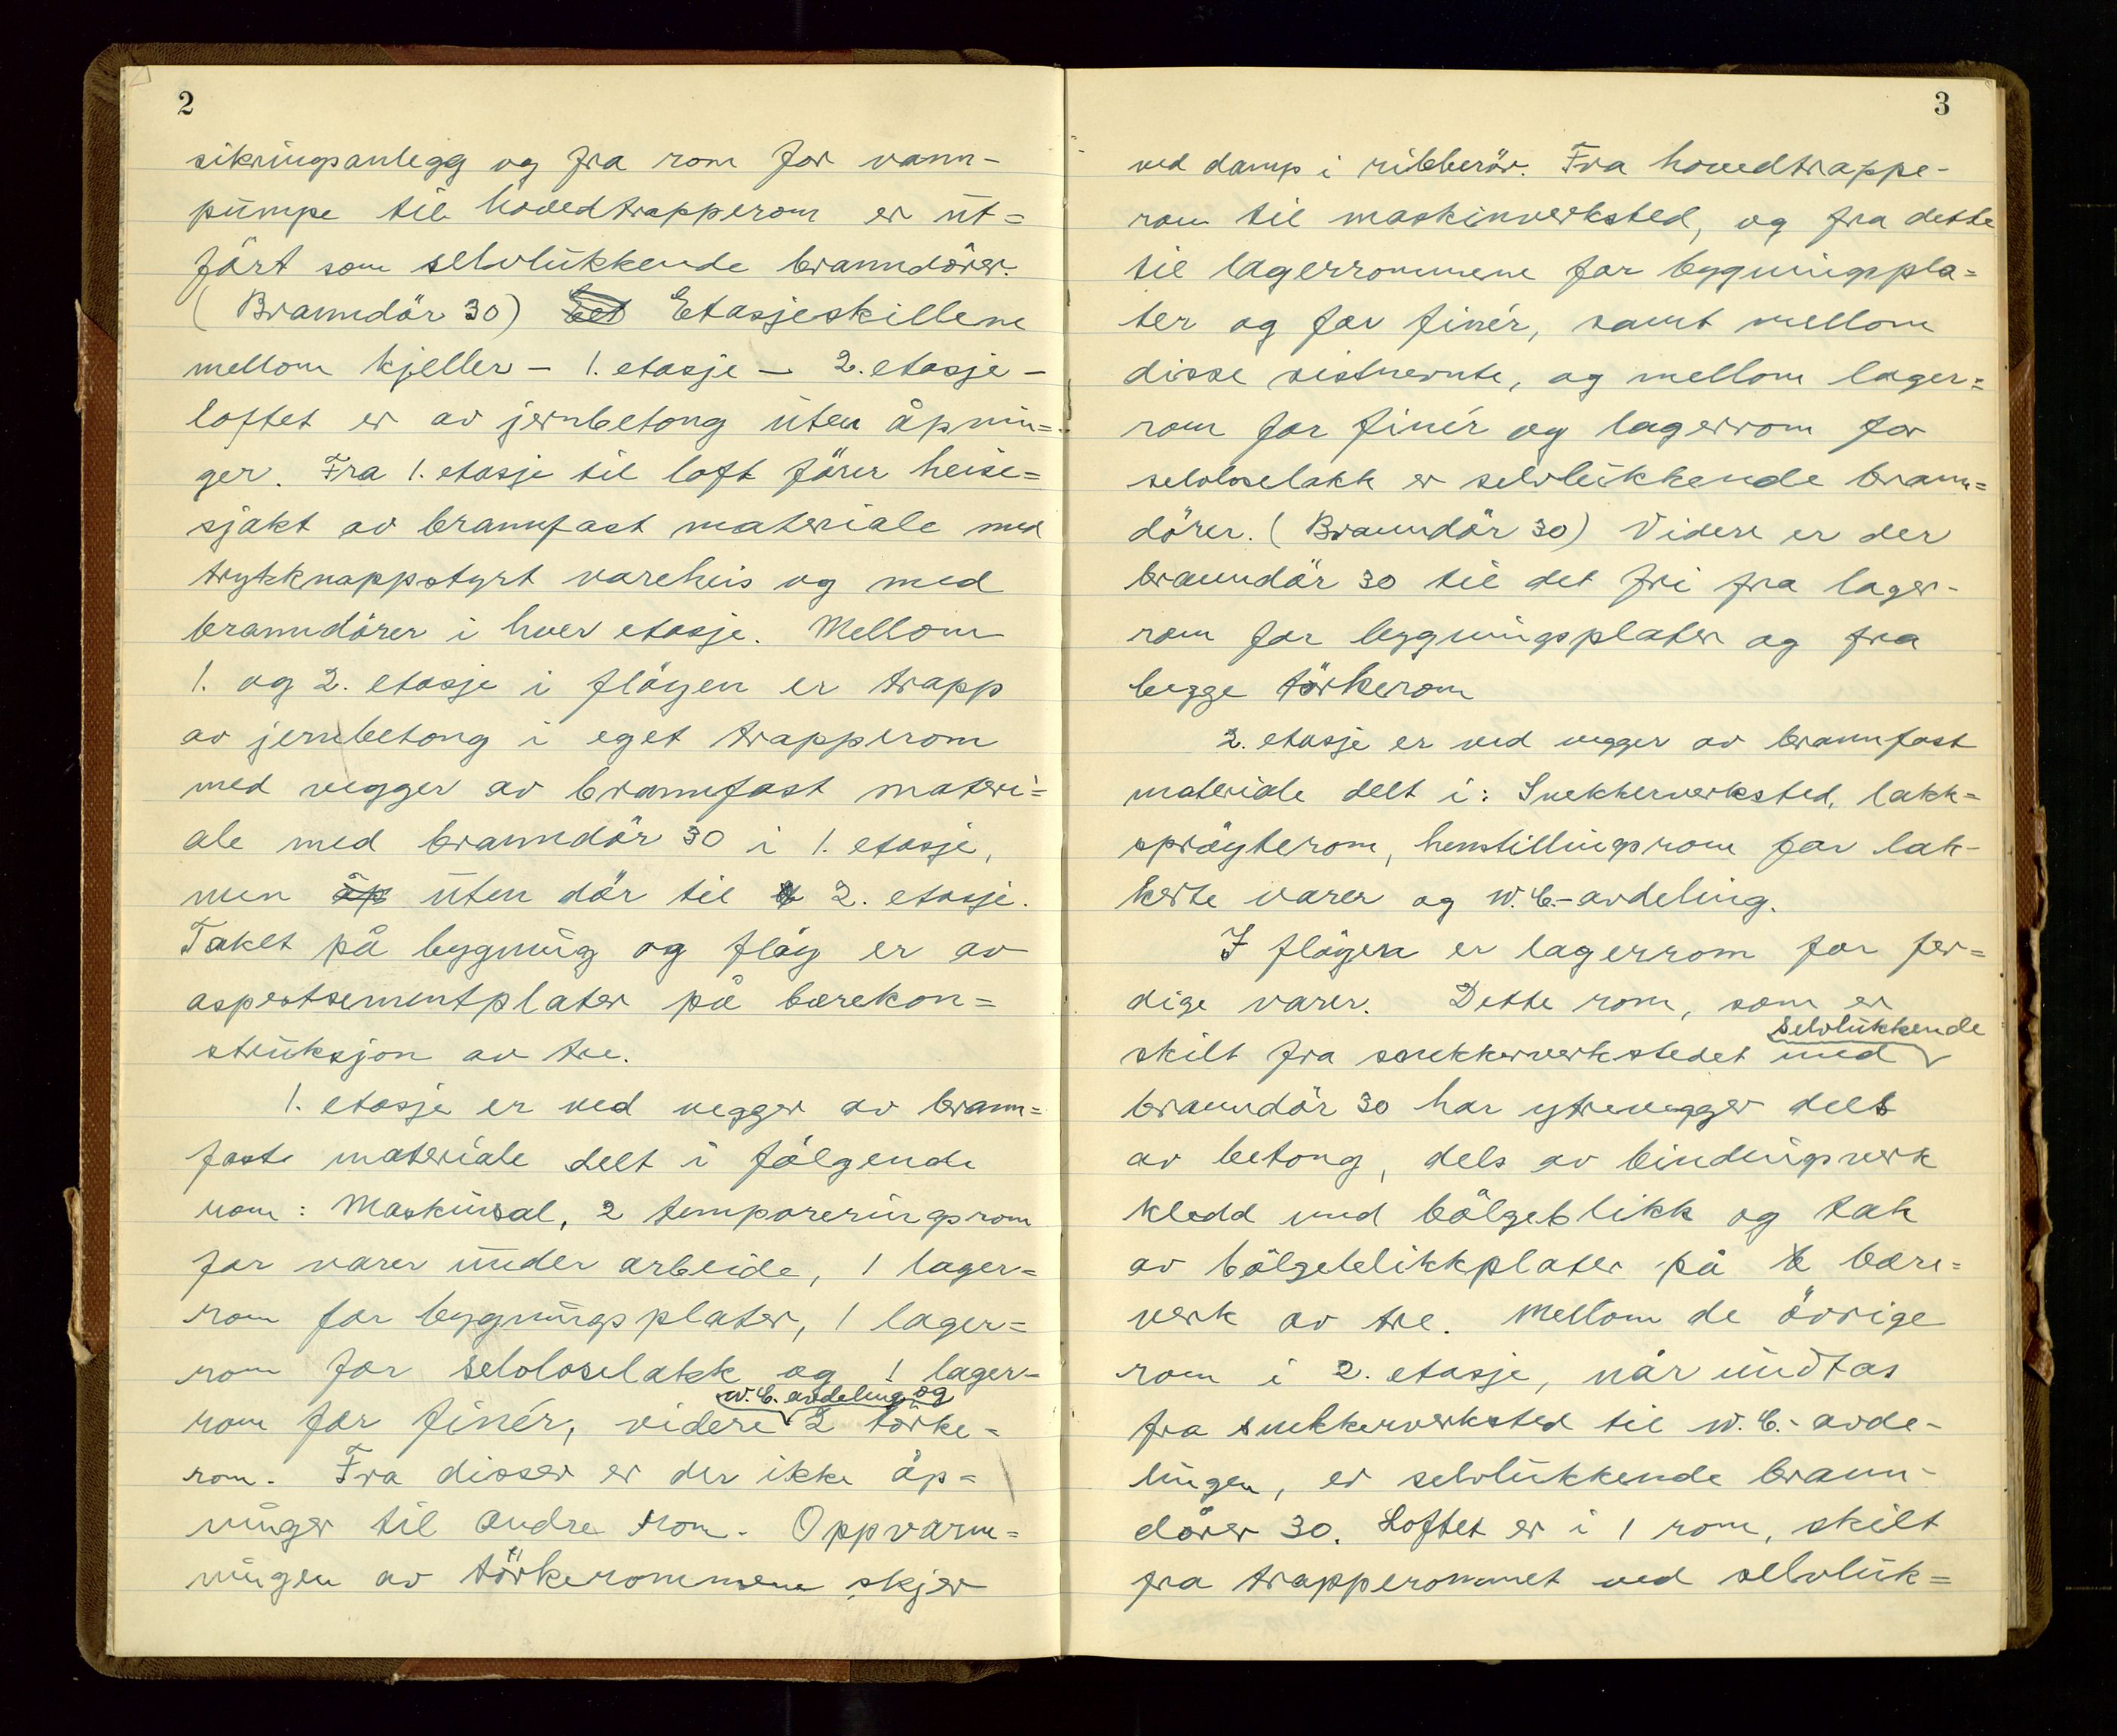 2
sikringsanlegg og fra rom for vann-
pumpe til hovedtrapperom er ut=
fört som selvlukkende branndörer.
(Branndör 30) Bet Etasjeskillene
mellom kjeller - 1. etasje - 2. etasje -
loftet er av jernbetong uten åpnin=
ger. Fra 1. etasje til loft förer heise=
sjakt av brannfast materiale med
trykknappstyrt vareheis og med
branndörer i hver etasje. Mellom
1. og 2. etasje i flöyen er trapp
av jernbetong i eget trapperom
med vegger av brannfast materi=
ale med branndör 30 i 1. etasje,
men åp uten dör til 2. etasje.
Taket på bygning og flöy er av
aspestsementplater på bærekon=
struksjon av tre.
1. etasje er ved vegger av brann=
fast materiale delt i fölgende
rom: Maskinsal, 2 temporeringsrom
for varer under arbeide, 1 lager=
rom for bygningsplater, 1 lager=
rom for seloloselakk og 1 lager=
w.c. avdeling og
rom for finér, videre 2 törke=
rom. Fra disser er der ikke åp=
ninger til andre rom. Oppvarm=
ningen av törkerommene skjer
3
ved damp i ribberör. Fra hovedtrappe-
rom til maskinverksted, og fra dette
til lagerrommene for bygningspla=
ter og for finér, samt mellom
disse sistnevnte, og mellom lager=
rom for finér og lagerrom for
seloloselakk er selvlukkende brann=
dörer. (Branndör 30) Videre er der
branndör 30 til det fri fra lager-
rom for bygningsplater og fra
begge törkerom
2. etasje er ved vegger av brannfast
materiale delt i: Snekkerverksted, lakk=
spröyterom, henstillingsrom for lak-
kerte varer og W.C.-avdeling.
I flöyen er lagerrom for fer=
dige varer. Dette rom, som er
selvlukkende
skilt fra snekkerverkstedet med
branndör 30 har yttrevegger dels
av betong, dels av bindingsverk
kledd med bölgeblikk og tak
av bölgeblikkplater på b bære=
verk av tre. Mellom de övrige
rom i 2. etasje, når undtas
fra snekkerverksted til W.C.-avde-
lingen, er selvlukkende brann-
dörer 30. Loftet er i 1 rom, skilt
fra trapperommet ved selvluk=